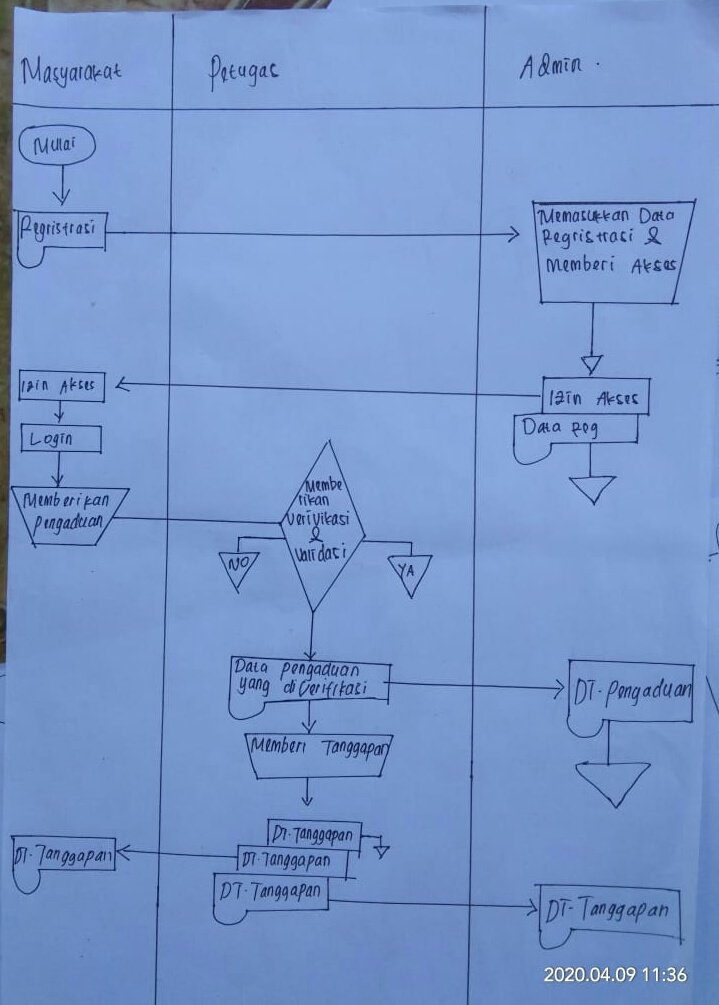 Masyarakat
Petugas
Admin.
Mulai
Regristrasi
Memasukkan Data
Regristrasi &
Memberi Akses
Izin Akses
Izin Akses
Data Reg
Login
Memberikan
pengaduan
Membe
rikan
verivikasi
&
validasi
NO
YA
Data pengaduan
yang diverifikasi
DT-pengaduan
Memberi Tanggapan
DT-Tanggapan
DT-Tanggapan
DT-Tanggapan
DT-Tanggapan
DT-Tanggapan
2020.04.09 11:36